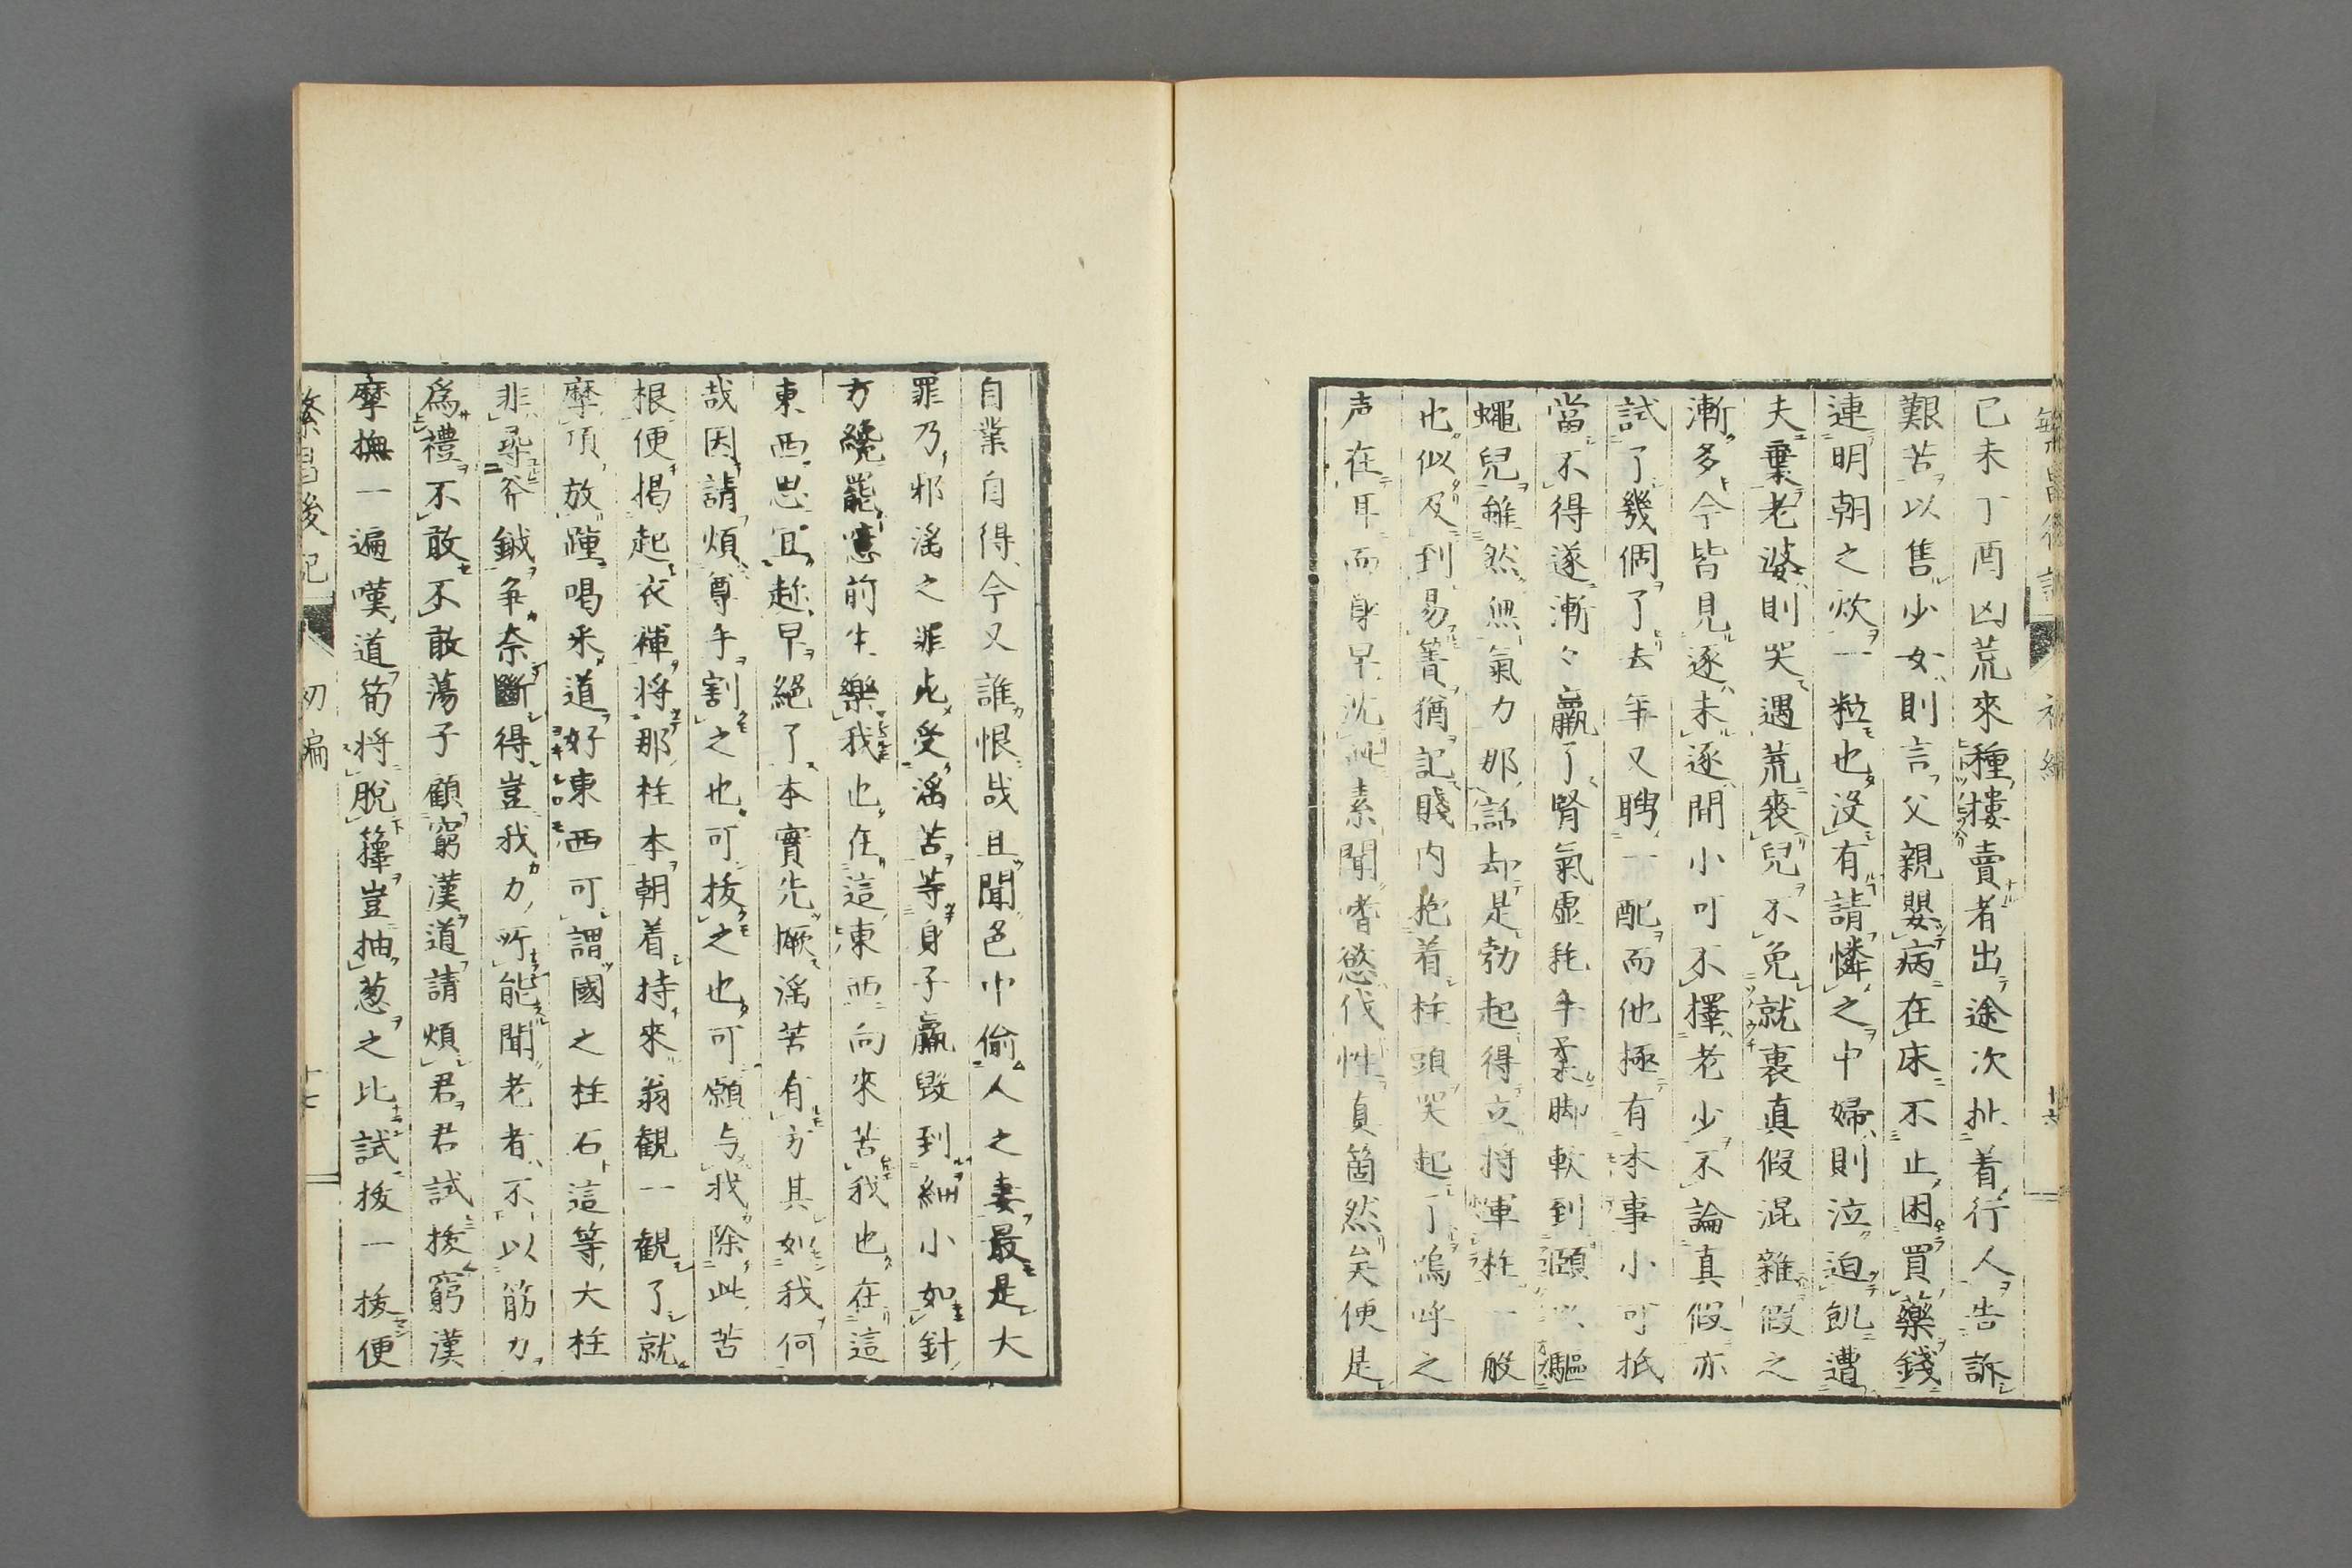 已未丁酉凶荒來種樓賣者出途次扯着行人告訴
艱苦以售少女則言父親嬰病在床不止困買藥錢
連明朝之炊一粒也没有請憐之中婦則泣迫飢遭
夫棄老婆則哭遇荒喪兒不免就裏真假混雜假之
漸多今皆見逐未逐間小可不擇老少不論真假亦
試了幾個了去年又聘一配而他極有本事小可抵
當不得遂漸々羸了腎氣虛耗手柔脚軟到頤以驅
蠅兒雖然無氣力那話却是勃起得立将軍柱一般
也似及到易簀猶記賤内抱着柱頭哭起了嗚呼之
声在耳而身早沈此素聞嗜慾伐性真箇然矣便是
自業自得今又誰恨哉且聞邑中偷人之妻最是大
罪乃邪滛之罪此受滛苦等身子羸毁到細小如針
方纔罷憶前生樂我也在這東西向來苦我也在這
東西思宜趂早絕了本實先撅滛苦有方其如我何
哉因請煩尊手割之也可拔之也可願与我除此苦
根便揭起衣褌将那柱本朝着持來翁観一観了就
摩頂放踵喝釆道好東西可謂國之柱石這等大柱
非尋斧鉞争奈斷得豈我力所能聞老者不以筋力
爲禮不敢不敢蕩子顧窮漢道請煩君君試拔窮漢
摩撫一遍嘆道筍将脫籜豈抽葱之比試拔一拔便
繁昌後記　初編　十七